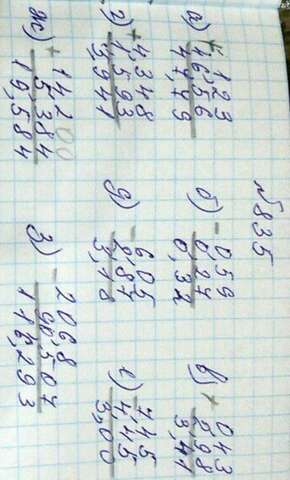 №835
а) + 123
4,656
4,779
б) - 0,59
0,27
0,32
в) + 0,43
2,98
3,41
г) + 4,348
1,593
5,941
д) - 6,05
2,87
3,18
е) - 7,45
4,45
3,00
ж) + 14,200
5,384
19,584
з) - 206,8
90,507
116,293